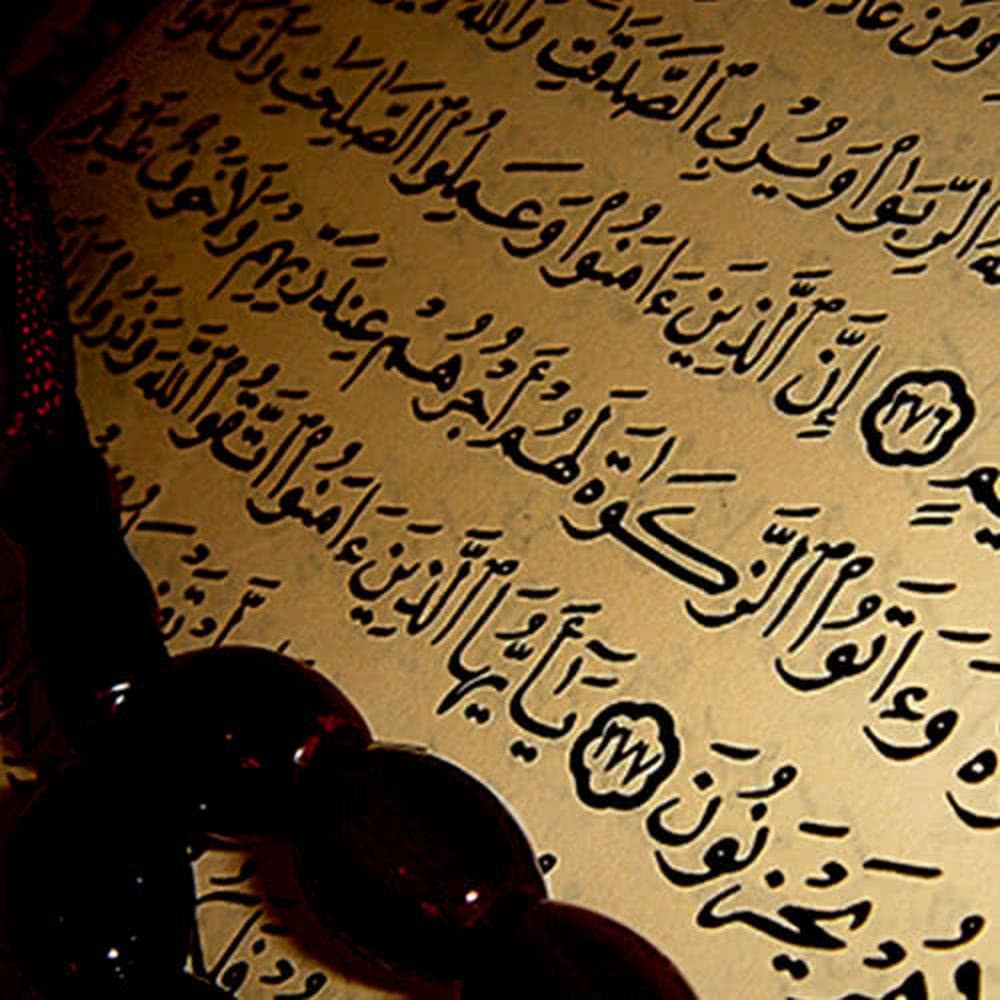 وَمَنْ عَادَ
ٱلرِّبَوٰا۟ وَيُرْبِى ٱلصَّدَقَٰتِ وَٱللَّهُ
۝٢٧٦ إِنَّ ٱلَّذِينَ ءَامَنُوا۟ وَعَمِلُوا۟ ٱلصَّٰلِحَٰتِ وَأَقَامُوا۟
وَءَاتَوُا۟ ٱلزَّكَوٰةَ لَهُمْ أَجْرُهُمْ عِندَ رَبِّهِمْ وَلَا خَوْفٌ
هُمْ يَحْزَنُونَ ۝٢٧٧ يَٰٓأَيُّهَا ٱلَّذِينَ ءَامَنُوا۟ ٱتَّقُوا۟ ٱللَّهَ وَذَرُوا۟